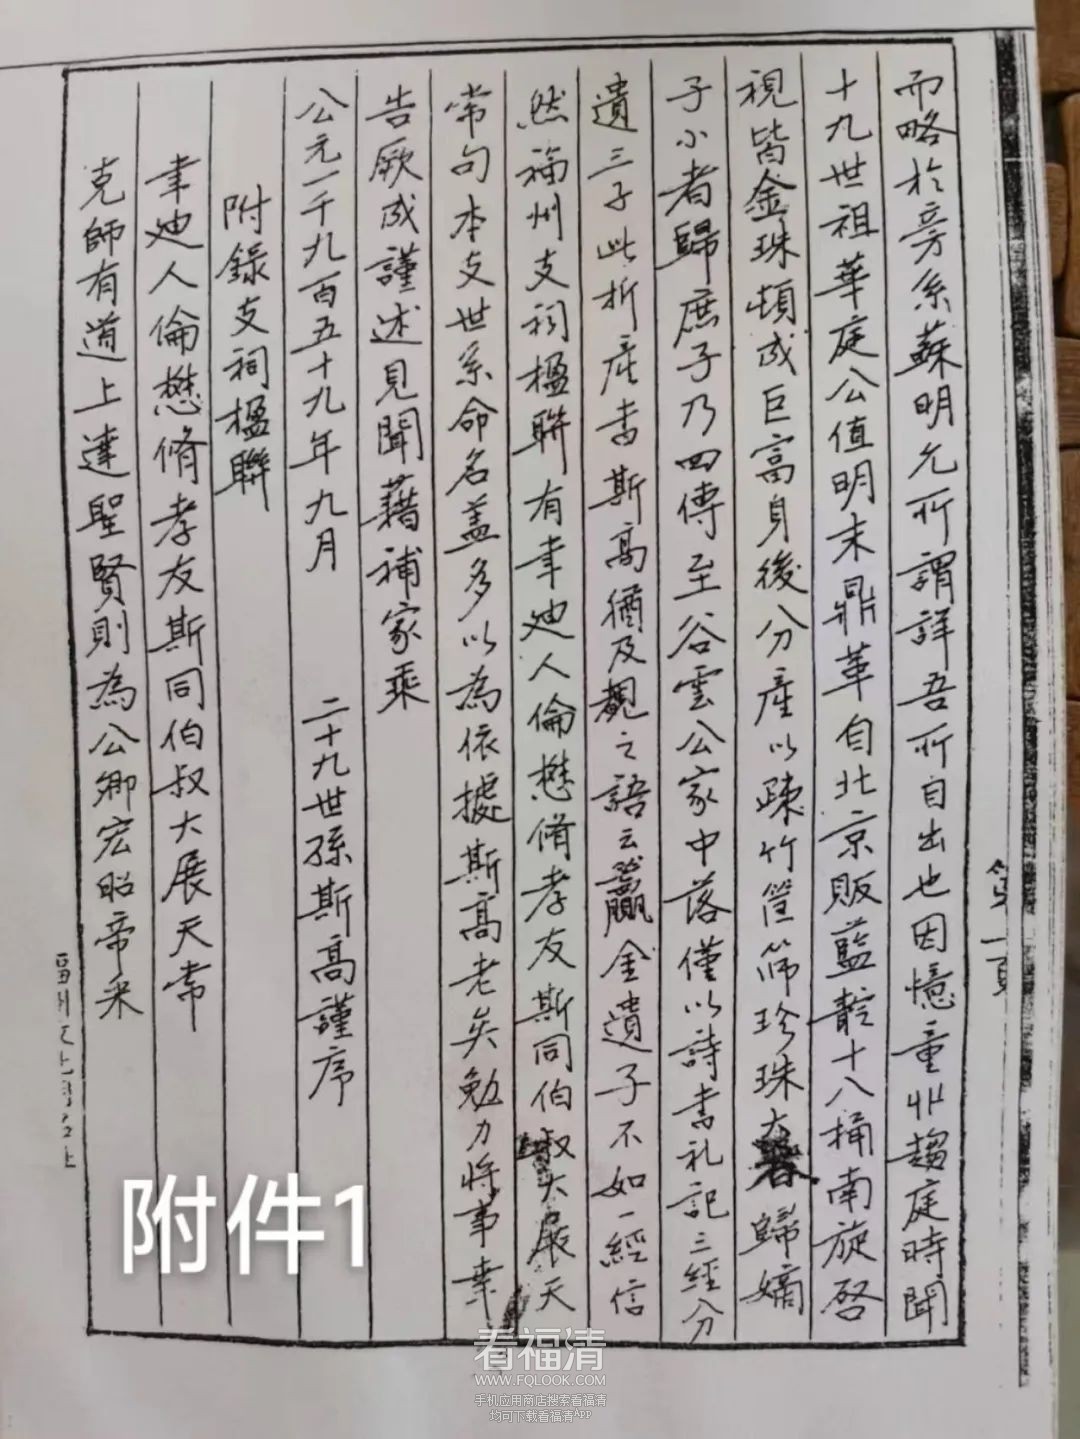 而略於旁系蘇明允所謂詳吾所自出也因憶童丱趨庭時聞
十九世祖華庭公值明末鼎革自北京販藍靛十八桶南旋啓
視皆金珠頓成巨富身後分產以疎竹筐篩珍珠大者歸嫡
子小者歸庶子乃四傳至谷雲公家中落僅以詩書礼記三經分
遺三子此析產書斯高猶及覩之語云籯金遺子不如一經信
然福州支祠楹聯有聿廸人倫懋脩孝友斯同伯叔大展天
常句本支世系命名盖多以為依據斯高老矣勉力将事幸
告厥成謹述見聞藉補家乘
公元一千九百五十九年九月 二十九世孫斯高謹序
附錄支祠楹聯
聿廸人倫懋脩孝友斯同伯叔大展天常
克師有道上達聖賢則為公卿宏昭帝采
附件1
看福清
WWW.FQLOOK.COM
手机应用商店搜索看福清
均可下载看福清App